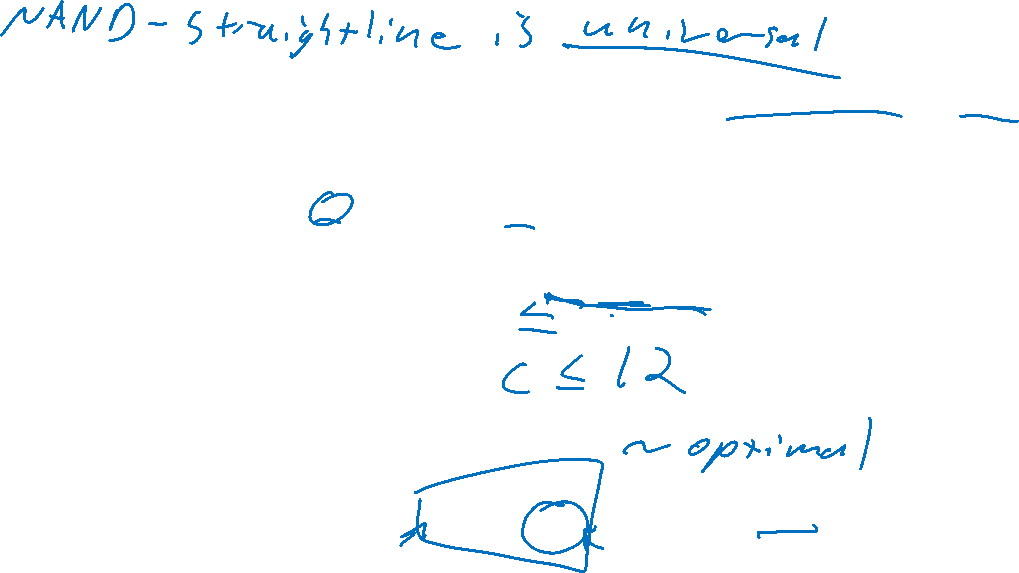 NAND-straightline is universal
≤
c ≤ 12
~ optimal